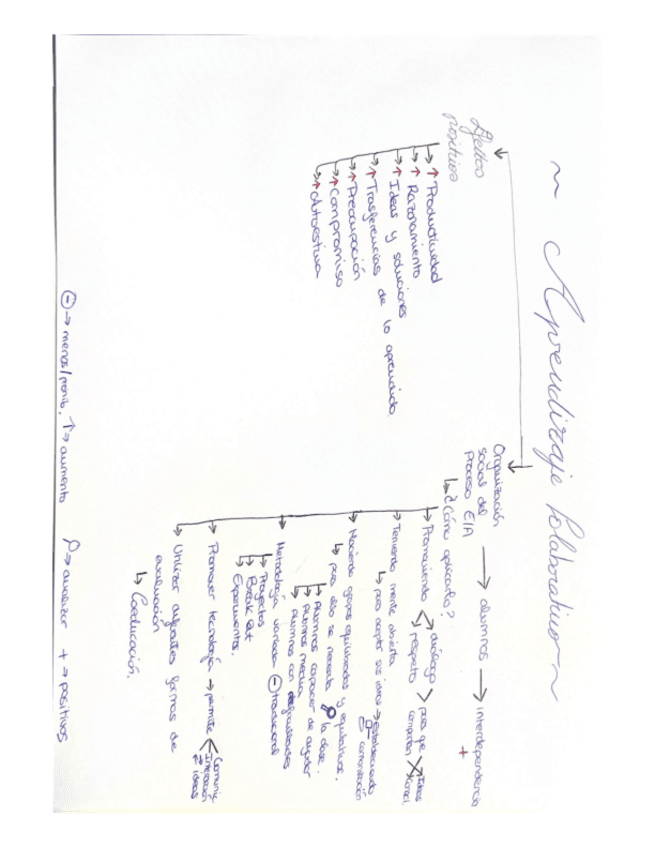 ~ Aprendizaje Colaborativo ~
Efectos
positivos
↑ Productividad
↑ Razonamiento
↑ Ideas y soluciones
↑ Trasferencias de lo aprendido
↑ Preocupación
↑ Compromiso
↑ Autoestima
Organización
social del
proceso E/A → alumnos → interdependencia +
↳ ¿Cómo aplicarlo?
Promoviendo < diálogo
respeto > para que
compartan
Teniendo mente abierta
↳ para aceptar sus ideas → estableciendo
comunicación
Haciendo grupos equilibrados y equitativos.
↳ para ello se necesita la clase.
↳ Alumnos capaces de ayudar
↳ Alumnos medios
↳ Alumnos con dificultades
Metodología variada ⊖ tradicional
↳ Proyectos
↳ Break Out
↳ Experimentos.
Promover tecnología → permite < Comunic
Interacción
⇄ ideas
Utilizar diferentes formas de
evaluación
↳ Coevaluación.
⊖ → menos/prohib. ↑ → aumento → analizar + → positivos